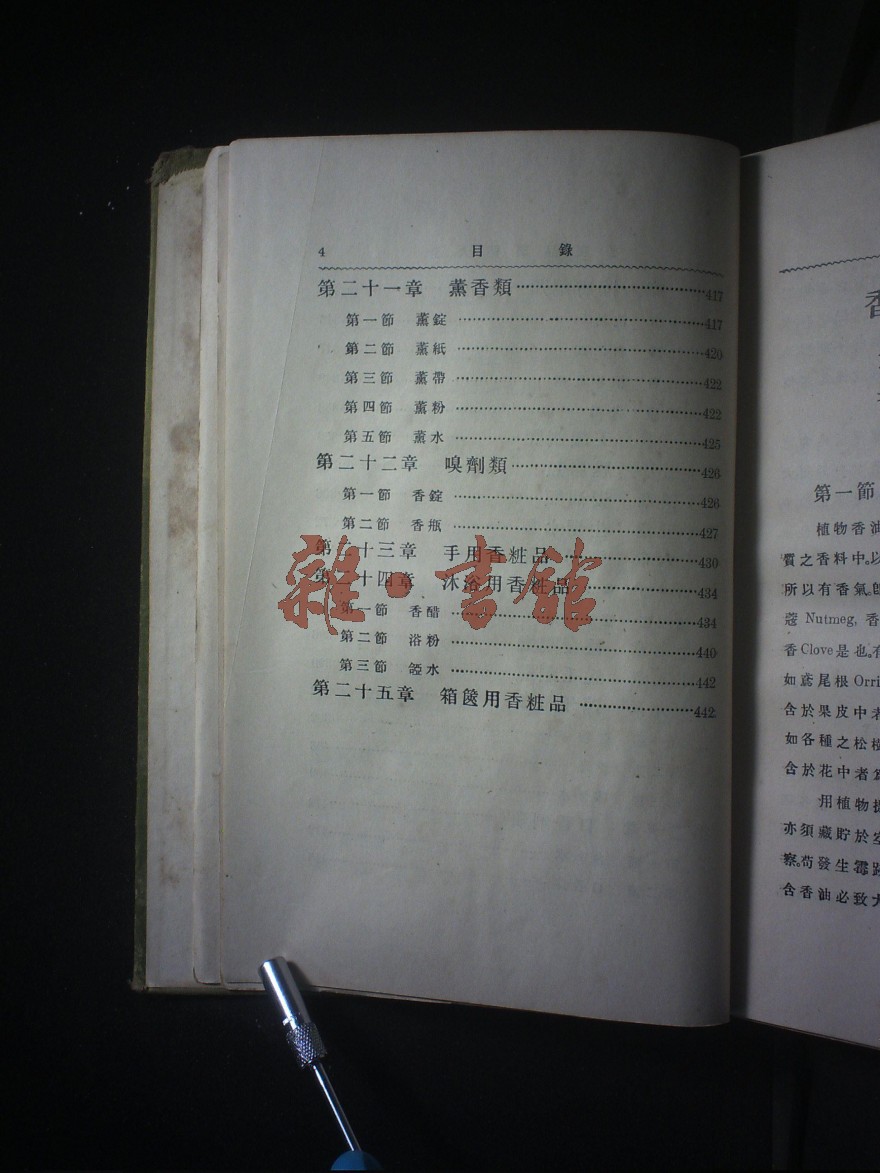 4 目錄
第二十一章 薰香類 417
第一節 薰錠 417
第二節 薰紙 420
第三節 薰帶 422
第四節 薰粉 422
第五節 薰水 425
第二十二章 嗅劑類 426
第一節 香錠 426
第二節 香瓶 427
第二十三章 手用香粧品 430
第二十四章 沐浴用香粧品 434
第一節 香醋 434
第二節 浴粉 440
第三節 水 442
第二十五章 箱篋用香粧品 442
雜·書館
香
第一節
植物香油
質之香料中。以
所以有香氣。
Nutmeg, 香
香 Clove 是也。有
如鳶尾根 Orri
含於果皮中者
如各種之松樹
含於花中者
用植物
亦須藏貯於空
察。苟發生霉
含香油必致大